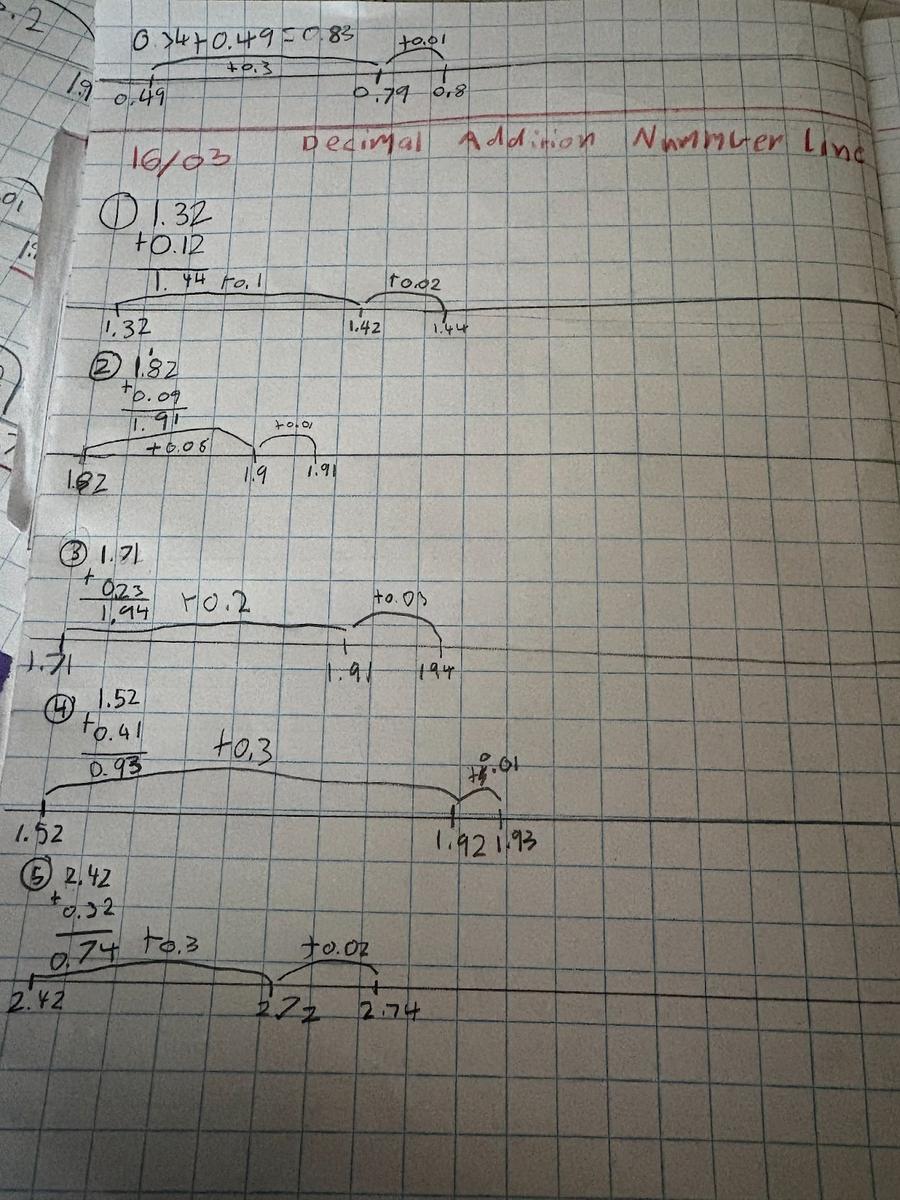 .2
0.34+0.49=0.83
+0.3
+0.01
1.9
0.49 0.79 0.8
16/03 Decimal Addirion Nummber Line
① 1.32
+0.12
1.44
+0.1 +0.02
1.32 1.42 1.44
② 1.82
+0.09
1.91
+0.01
+0.08
1.82 1.9 1.91
③ 1.71
+
0.23
1.94
+0.2 +0.03
1.71 1.91 194
④ 1.52
+0.41
0.93
+0.3 +0.01
1.52 1.92 1.93
⑤ 2.42
+
0.32
0.74
+0.3 +0.02
2.42 2.72 2.74